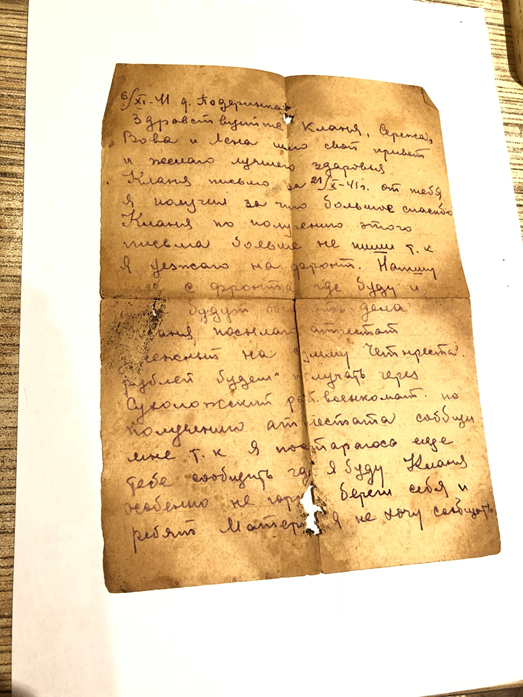 6/XI-41 д. Подеринка
Здравствуйте Кланя, Сережа,
Вова и Лена шлю свой привет
и желаю лучшего здоровья.
Кланя письмо за 21/X-41г. от тебя
я получил за что большое спасибо
Кланя по получению этого
письма больше не пиши т.к
я уезжаю на фронт. Напишу
с фронта где буду и
будут дела
посылаю аттестат
на сумму
рублей будешь получать через
Сухоложский рай.военкомат. по
получению аттестата сообщи
мне т.к я постараюсь еще
тебе сообщить где я буду Кланя
особенно не горюй береги себя и
ребят Матери я не хочу сообщать